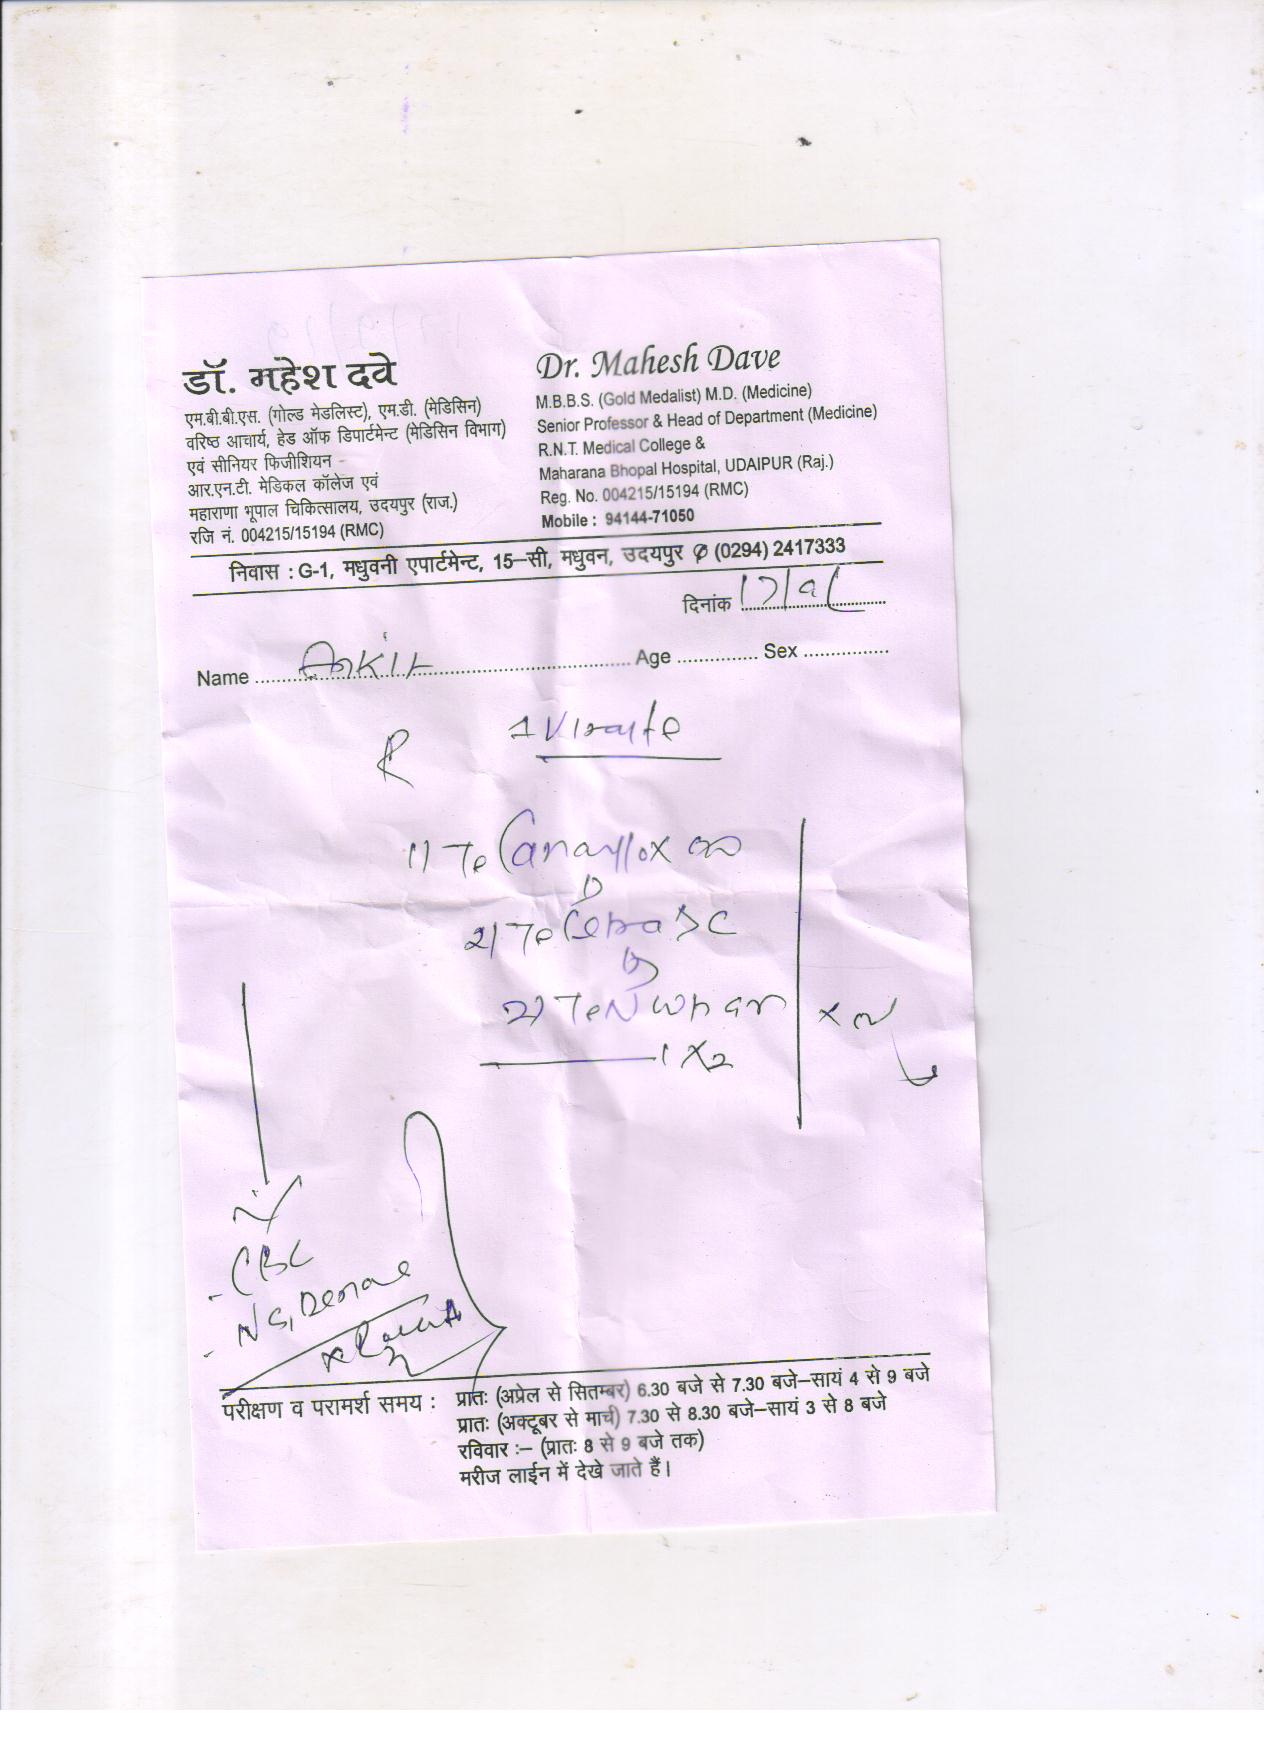 डॉ. महेश दवे
एम.बी.बी.एस. (गोल्ड मेडलिस्ट), एम.डी. (मेडिसिन)
वरिष्ठ आचार्य, हेड ऑफ डिपार्टमेन्ट (मेडिसिन विभाग)
एवं सीनियर फिजीशियन -
आर.एन.टी. मेडिकल कॉलेज एवं
महाराणा भूपाल चिकित्सालय, उदयपुर (राज.)
रजि नं. 004215/15194 (RMC)
Dr. Mahesh Dave
M.B.B.S. (Gold Medalist) M.D. (Medicine)
Senior Professor & Head of Department (Medicine)
R.N.T. Medical College &
Maharana Bhopal Hospital, UDAIPUR (Raj.)
Reg. No. 004215/15194 (RMC)
Mobile : 94144-71050
निवास : G-1, मधुवनी एपार्टमेन्ट, 15–सी, मधुवन, उदयपुर ✆ (0294) 2417333
दिनांक 17/9/
Name Ankit Age Sex
R
1) Te
2) Te
Te
1 X2
- CBC
परीक्षण व परामर्श समय : प्रातः (अप्रेल से सितम्बर) 6.30 बजे से 7.30 बजे–सायं 4 से 9 बजे
प्रातः (अक्टूबर से मार्च) 7.30 से 8.30 बजे–सायं 3 से 8 बजे
रविवार :– (प्रातः 8 से 9 बजे तक)
मरीज लाईन में देखे जाते हैं।